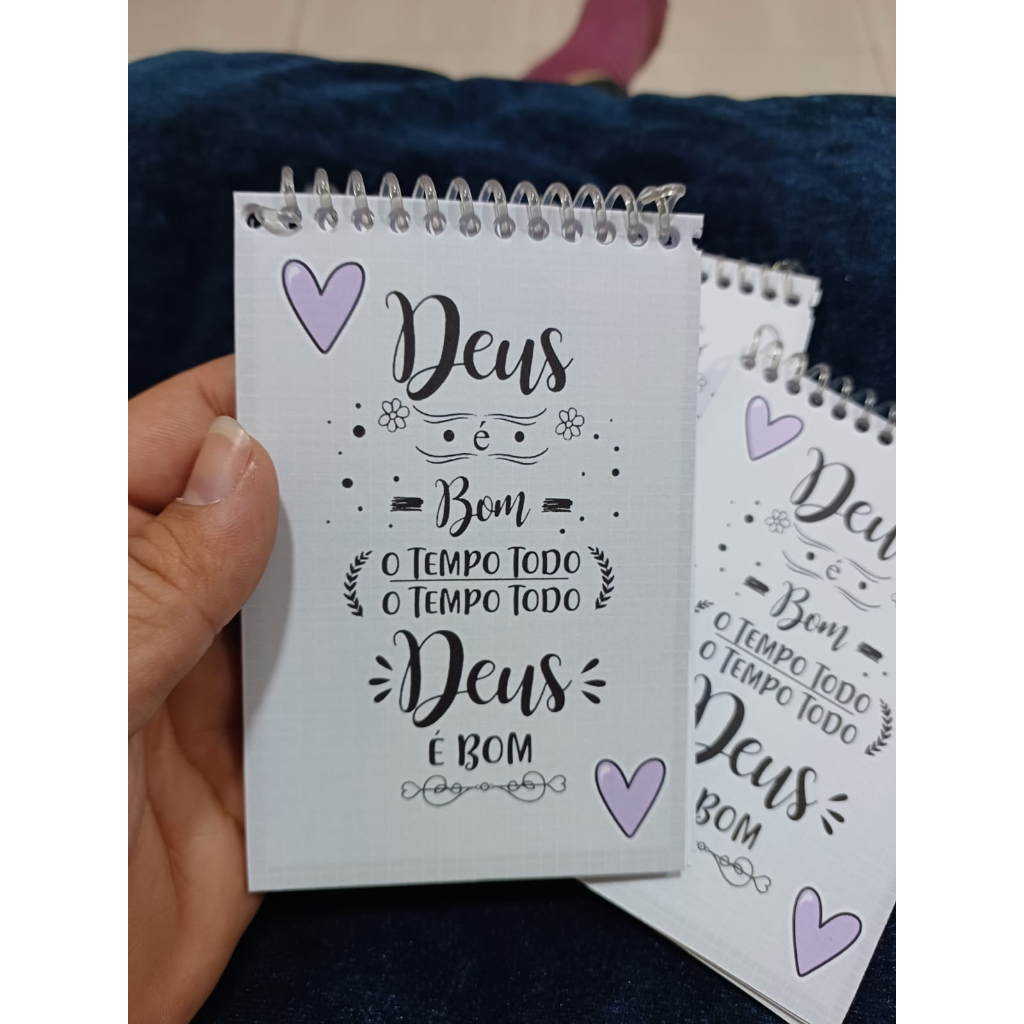 Deus
é
Bom
O TEMPO TODO
O TEMPO TODO
Deus
É BOM
Deus
é
Bom
O TEMPO TODO
O TEMPO TODO
Deus
BOM